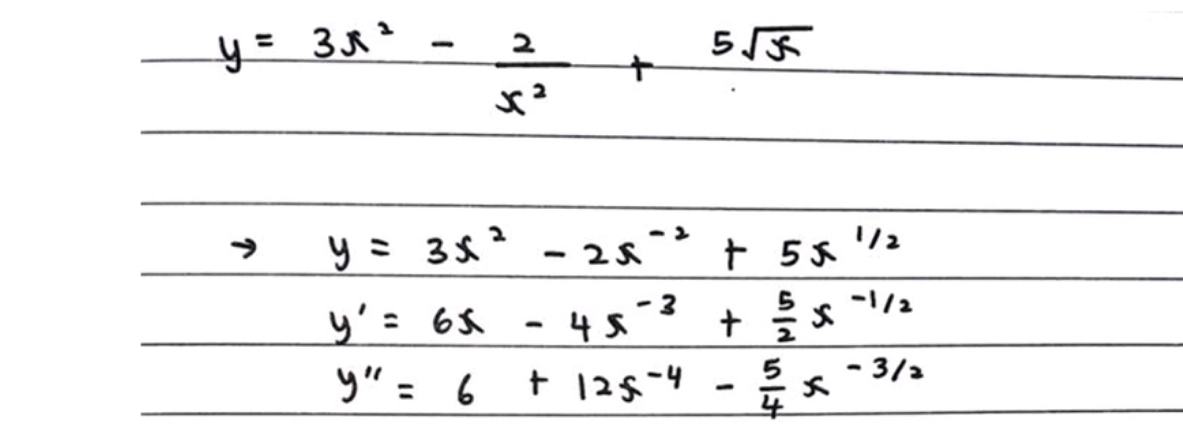 y = 3x² - 2/x² + 5√x
→ y = 3x² - 2x⁻² + 5x^1/2
y' = 6x - 4x⁻³ + 5/2 x^-1/2
y'' = 6 + 12x⁻⁴ - 5/4 x^-3/2